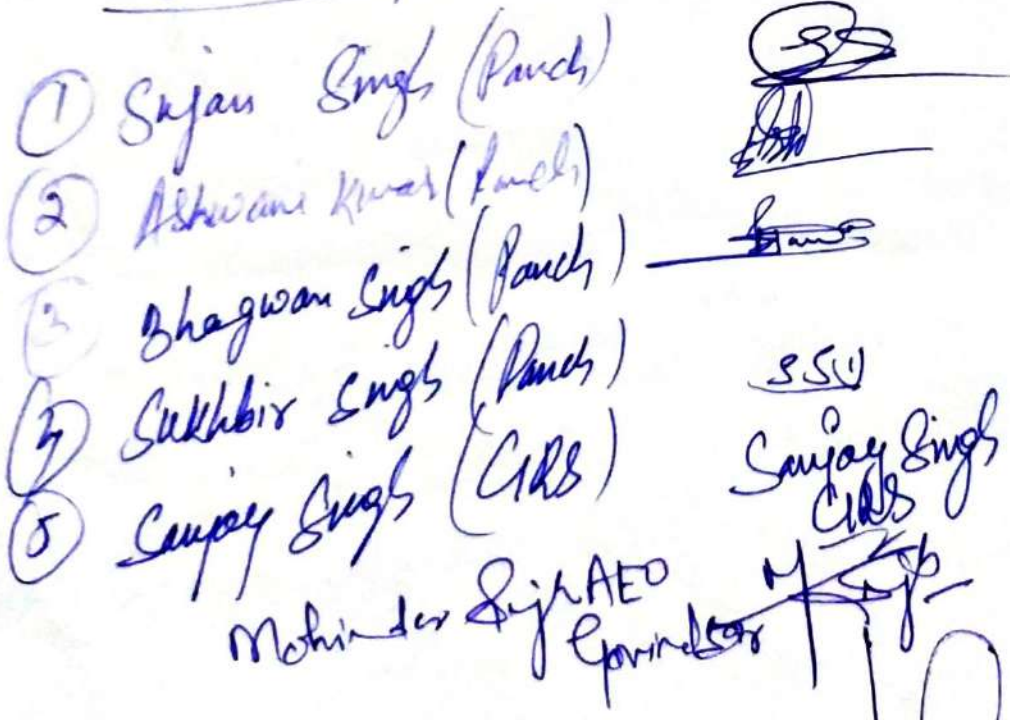 ① Sujan Singh (Panch)
② Ashwani Kumar (Panch)
③ Bhagwan Singh (Panch)
④ Sukhbir Singh (Panch)
⑤ Sanjay Singh (GRS) Sanjay Singh
GRS
Mohinder Singh AEO
Govindsar